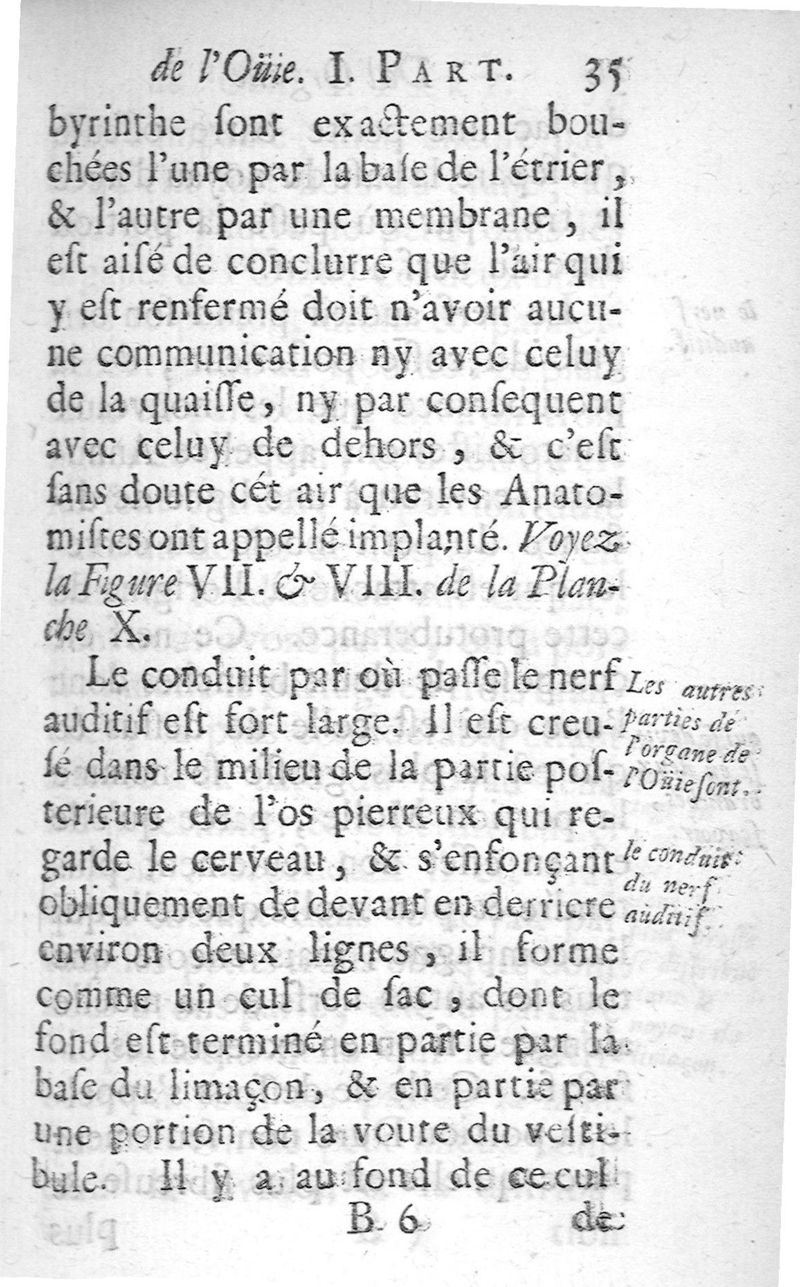 de l'Oüie. I. PART. 35
byrinthe ſont exactement bou-
chées l'une par la baſe de l'étrier,
& l'autre par une membrane, il
eſt aiſé de conclurre que l'air qui
y eſt renfermé doit n'avoir aucu-
ne communication ny avec celuy
de la quaiſſe, ny par conſequent
avec celuy de dehors, & c'eſt
ſans doute cét air que les Anato-
miſtes ont appellé implanté. Voyez
la Figure VII. & VIII. de la Plan-
che X.
Le conduit par où paſſe le nerf
auditif eſt fort large. Il eſt creu-
ſé dans le milieu de la partie poſ-
terieure de l'os pierreux qui re-
garde le cerveau, & s'enfonçant
obliquement de devant en derriere
environ deux lignes, il forme
comme un cul de ſac, dont le
fond eſt terminé en partie par la
baſe du limaçon, & en partie par
une portion de la voute du veſti-
bule. Il y a au fond de ce cul
B 6 de
Les autres
parties de
l'organe de
l'Oüie ſont.
le conduit
du nerf
auditif.